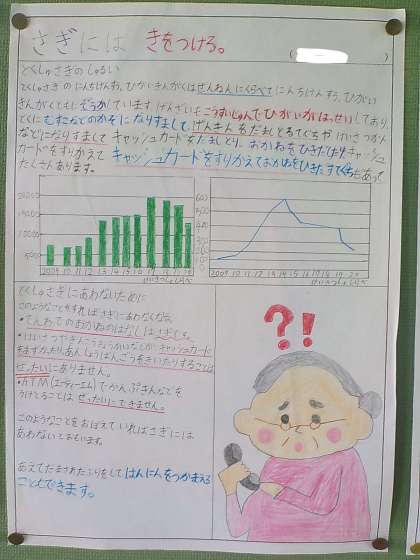 さぎには きをつけろ。
とくしゅさぎのしゅるい
とくしゅさぎの にんちけんすう、ひがいきんがくはぜんねんにくらべてにんちけんすう、ひがい
きんがくともしぞうかしています げんざいもこうすいじゅんでひがいがはっせいしており、
とくにむすこなどのかぞくになりすまして、げんきんをだましとるてぐちや けいさつかん
などになりすまして キャッシュカードをだましとり、おかねをひきだしたり、キャッシュ
カードをすりかえて キャッシュカードをすりかえておかねをひきだすてぐちもあって
たくさんあります。
20000
15000
10000
5000
2009 10 11 12 13 14 15 16 17 18 19 20
けいさつしょしらべ
600
500
400
300
200
100
2009 10 11 12 13 14 15 16 17 18 19 20
けいさつしょしらべ
とくしゅさぎにあわないために
このようなことをすればさぎにあわなくなる。
・でんわでのおかねのはなしはさぎです。
・けいさつやぎんこうきょうかいなどが、キャッシュカード
をあずかったりあんしょうばんごうをきいたりすることは
ぜったいにありません。
・ATM(エーティーエム)でかんぷきんなどを
うけとることは ぜったいにできません。
このようなことをおぼえていればさぎには
あわないとおもいます。
あえてだまされたふりをして はんにんをつかまえる
こともできます。
?!